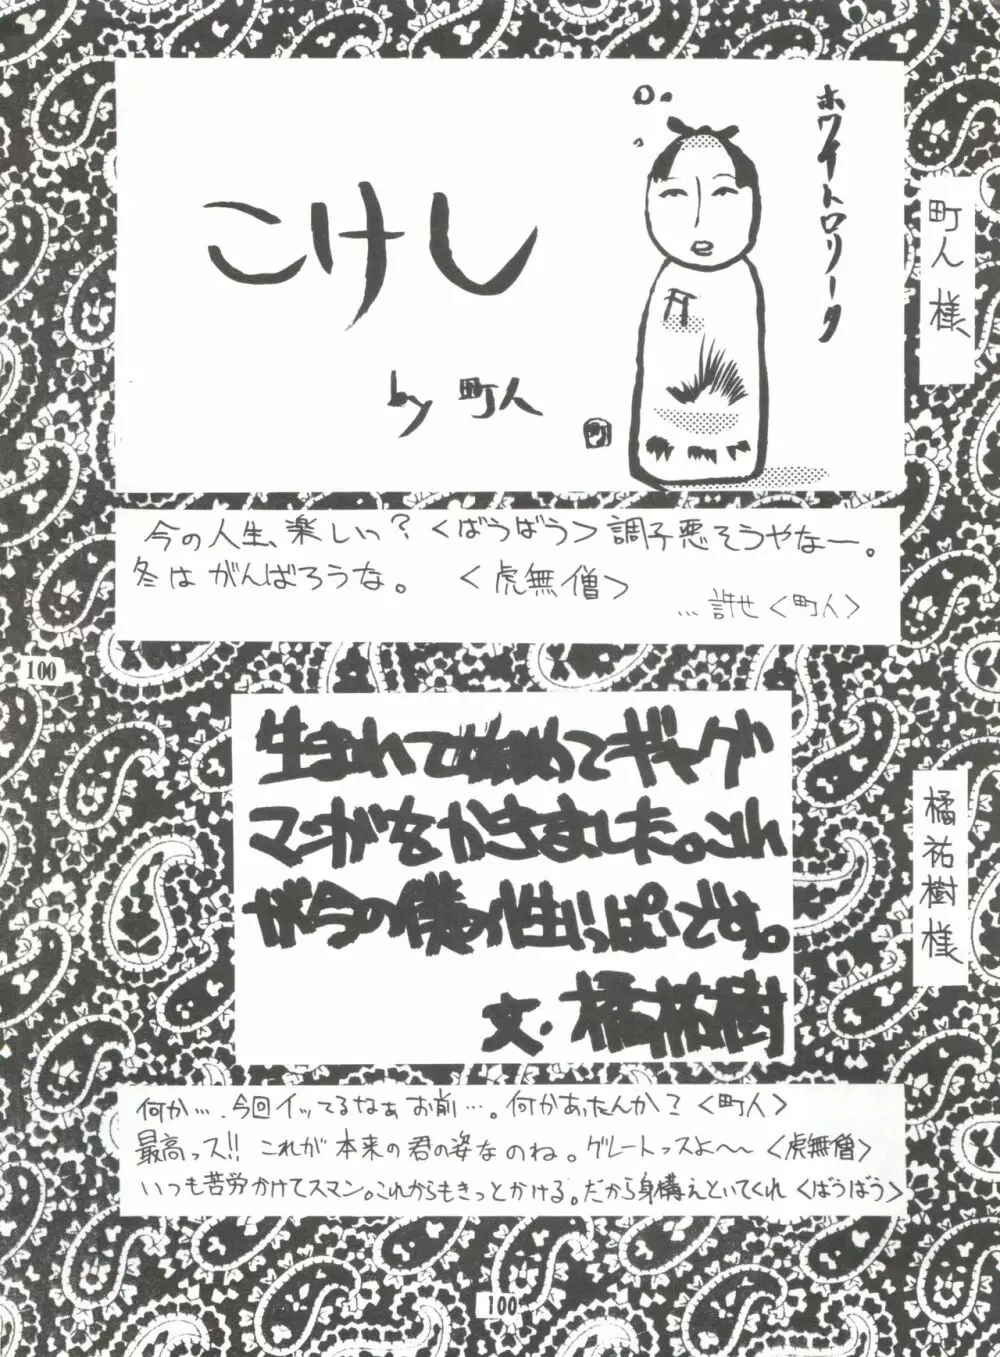 ホワイトロリータ
こけし
by 町人
町
町人様
今の人生、楽しいっ?<ばうばう>調子悪そうやなー。
冬は がんばろうな。 <虎無僧>
…許せ<町人>
100
生まれて初めてギャグ
マンガをかきました。とて
も今の僕の性っぽいです。
文・橘祐樹
橘祐樹様
何か…、今回イッてるなぁ お前…。何かあったんか?<町人>
最高っス!! これが 本来の君の姿なのね。グレートっスよ〜〜<虎無僧>
いつも苦労かけてスマン。これからもきっとかける。だから身構えといてくれ<ばうばう>
100